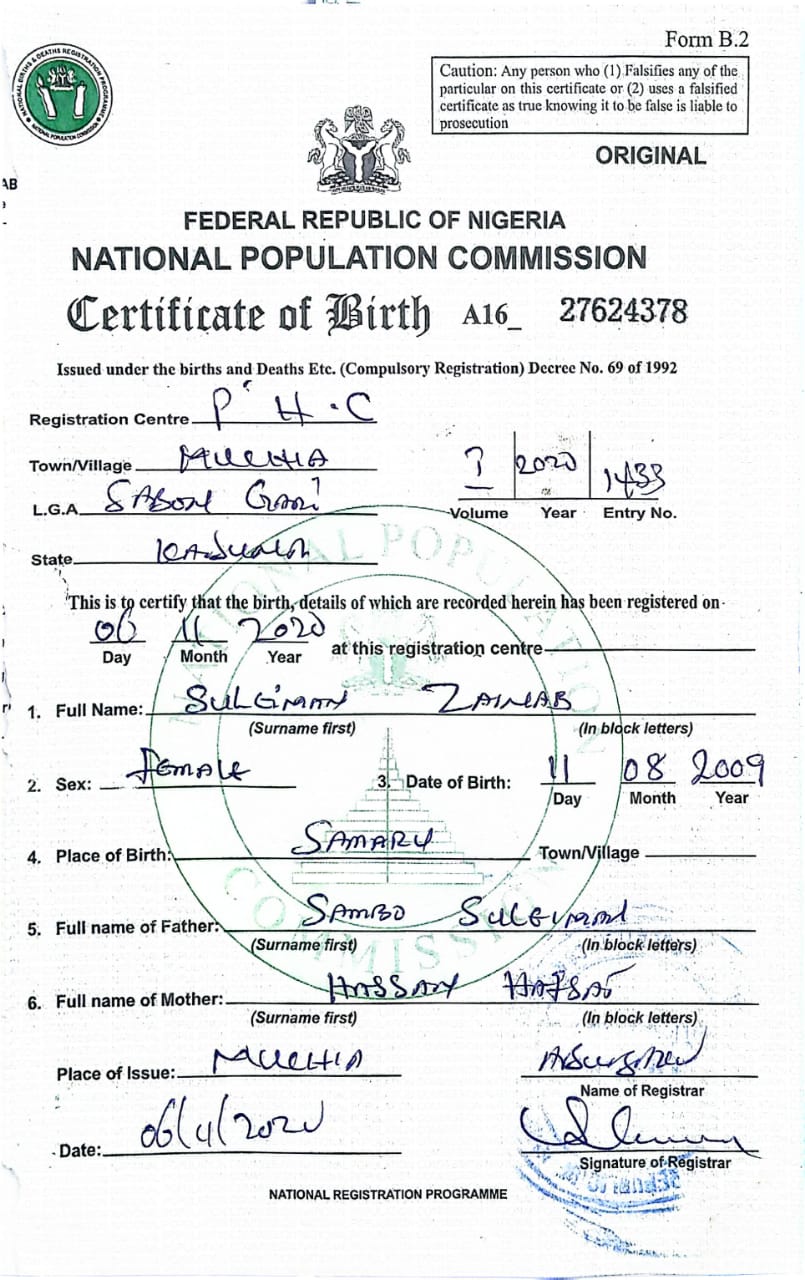 Form B.2
Caution: Any person who (1) Falsifies any of the
particular on this certificate or (2) uses a falsified
certificate as true knowing it to be false is liable to
prosecution
ORIGINAL
FEDERAL REPUBLIC OF NIGERIA
NATIONAL POPULATION COMMISSION
Certificate of Birth A16_ 27624378
Issued under the births and Deaths Etc. (Compulsory Registration) Decree No. 69 of 1992
Registration Centre P.H.C
Town/Village MUCHIA
2020 1433
L.G.A. SABON GARI
Volume Year Entry No.
State KADUNA
This is to certify that the birth, details of which are recorded herein has been registered on
06 11 2020 at this registration centre
Day Month Year
1. Full Name: SULEIMAN ZAINAB
(Surname first) (In block letters)
2. Sex: FEMALE 3. Date of Birth: 11 08 2009
Day Month Year
4. Place of Birth: SAMARU Town/Village
5. Full name of Father: SAMBO SULEIMAN
(Surname first) (In block letters)
6. Full name of Mother: HASSAN HAFSAT
(Surname first) (In block letters)
Place of Issue: MUCHIA
Name of Registrar
Date: 06/11/2020
Signature of Registrar
NATIONAL REGISTRATION PROGRAMME
NATIONAL POPULATION COMMISSION